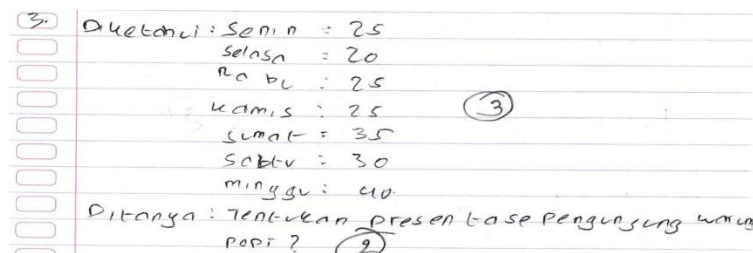 3. Diketahui : Senin : 25
Selasa : 20
Rabu : 25
Kamis : 25 3
Jumat : 35
Sabtu : 30
Minggu : 40.
Ditanya : Tentukan presentase pengunjung warung
popi ? 2